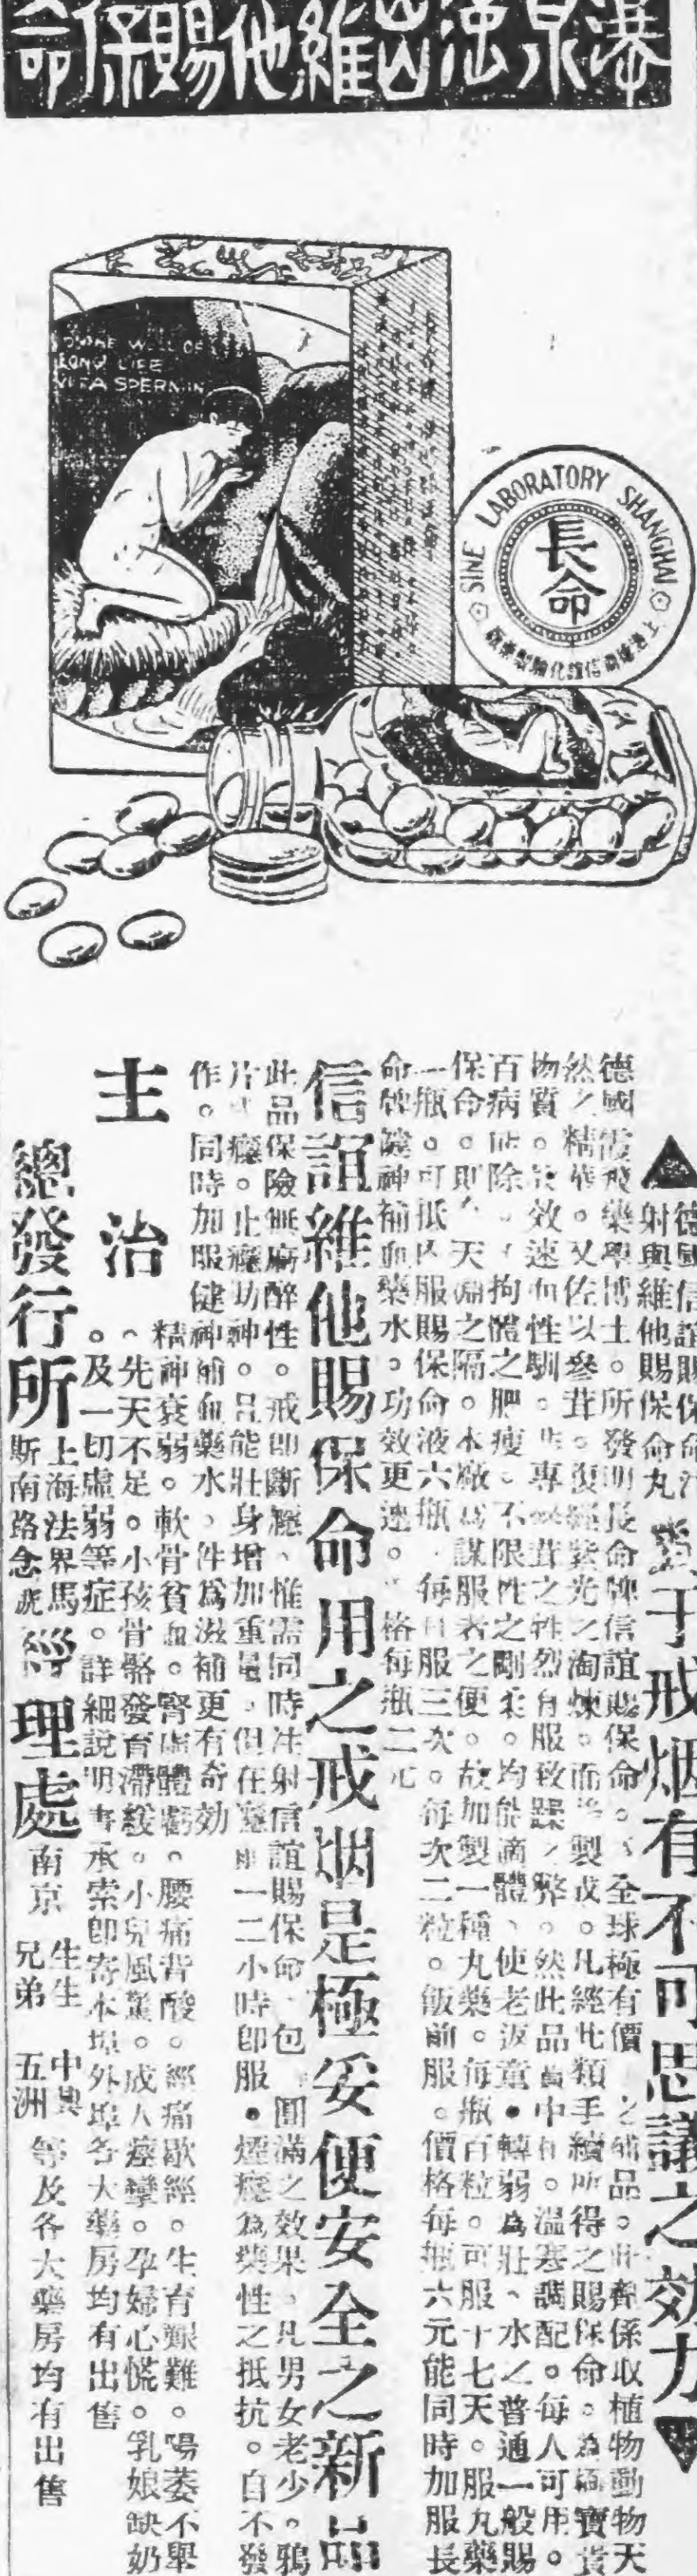 命保賜他維
THE WELL OF
LONG LIFE
VITA SPERMIN
SINE LABORATORY SHANGHAI
長命
德國信誼賜保命
射與維他賜保命丸
對于戒烟有不可思議之効力
德國霞飛藥學博士。所發明長命牌信誼賜保命。全球極有價之補品。此劑係收植物動物天
然之精華。又佐以參茸。復經紫光之淘煉。而製成。凡經此類手續所得之賜保命。為極寶貴
物質。效速而性馴。非專參茸之性烈有服致躁之弊。然此品中和。溫寒調配。每人可用。
百病除。拘體之肥瘦。不限性之剛柔。均能適體、使老返童•轉弱為壯、水之普通一般賜
保命。即有天淵之隔。本廠為謀服者之便。故加製一種丸藥。每瓶百粒。可服十七天。服丸藥
一瓶。可抵服賜保命液六瓶。每日服三次。每次二粒。飯前服。價格每瓶六元能同時加服長
命牌健神補血藥水。功效更速。格每瓶二元
信誼維他賜保命用之戒烟是極妥便安全之新品
此品保險無麻醉性。戒即斷癮、惟需同時注射信誼賜保命、包圓滿之效果。凡男女老少。鴉
片癮。止癮功神。且能壯身增加重量。但在癮前一二小時即服•煙癮為獎性之抵抗。自不發
作。同時加服健神補血藥水、件為滋補更有奇効
主治
精神衰弱。軟骨貧血。腎虛體虧。腰痛背酸。經痛歇經。生育艱難。陽萎不舉
先天不足。小孩骨骼發育滯緩。小兒風驚。成人痙攣。孕婦心慌。乳娘缺奶
。及一切虛弱等症。詳細說明書承索即寄本埠外埠各大藥房均有出售
總發行所
上海法界馬
斯南路念號
經理處
南京
生生 中興
兄弟 五洲
等及各大藥房均有出售